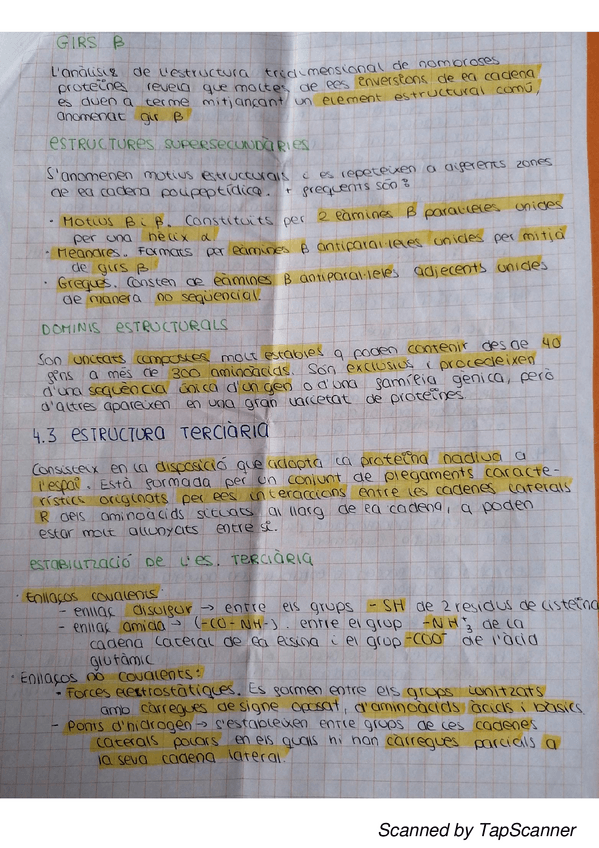 GIRS β
L'anàlisis de l'estructura tridimensional de nombroses
proteïnes revela que moltes de les inversions de la cadena
es duen a terme mitjançant un element estructural comú,
anomenat gir β
ESTRUCTURES SUPERSECUNDÀRIES
S'anomenen motius estructurals i es repeteixen a diferents zones
de la cadena polipeptídica. + freqüents són:
· Motius β i β. Constituïts per 2 làmines β paral·leles unides
per una hèlix α
· Meandres. Formats per làmines β antiparal·leles unides per mitjà
de girs β
· Gregues. Consten de làmines β antiparal·leles adjecents unides
de manera no seqüencial.
DOMINIS ESTRUCTURALS
Són unitats compostes molt estables q poden contenir des de 40
fins a més de 300 aminoàcids. Són exclusius i procedeixen
d'una seqüència única d'un gen o d'una família gènica, però
d'altres apareixen en una gran varietat de proteïnes
4.3 ESTRUCTURA TERCIÀRIA
Consisteix en la disposició que adopta la proteïna nadiva a
l'espai. Està formada per un conjunt de plegaments caracte-
rístics originats per les interaccions entre les cadenes laterals
R dels aminoàcids situats al llarg de la cadena, q poden
estar molt allunyats entre sí.
ESTABILITZACIÓ DE L'ES. TERCIÀRIA
· Enllaços covalents:
- enllaç disulfur → entre els grups -SH de 2 residus de cisteïna
- enllaç amida → (-CO-NH-). entre el grup -NH₃⁺ de la
cadena lateral de la lisina i el grup -COO⁻ de l'àcid
glutàmic
· Enllaços no covalents:
- Forces electrostàtiques. Es formen entre els grups ionitzats
amb càrregues de signe oposat, d'aminoàcids àcids i bàsics
- Ponts d'hidrogen → s'estableixen entre grups de les cadenes
laterals polars en els quals hi han càrregues parcials a
la seva cadena lateral.
Scanned by TapScanner